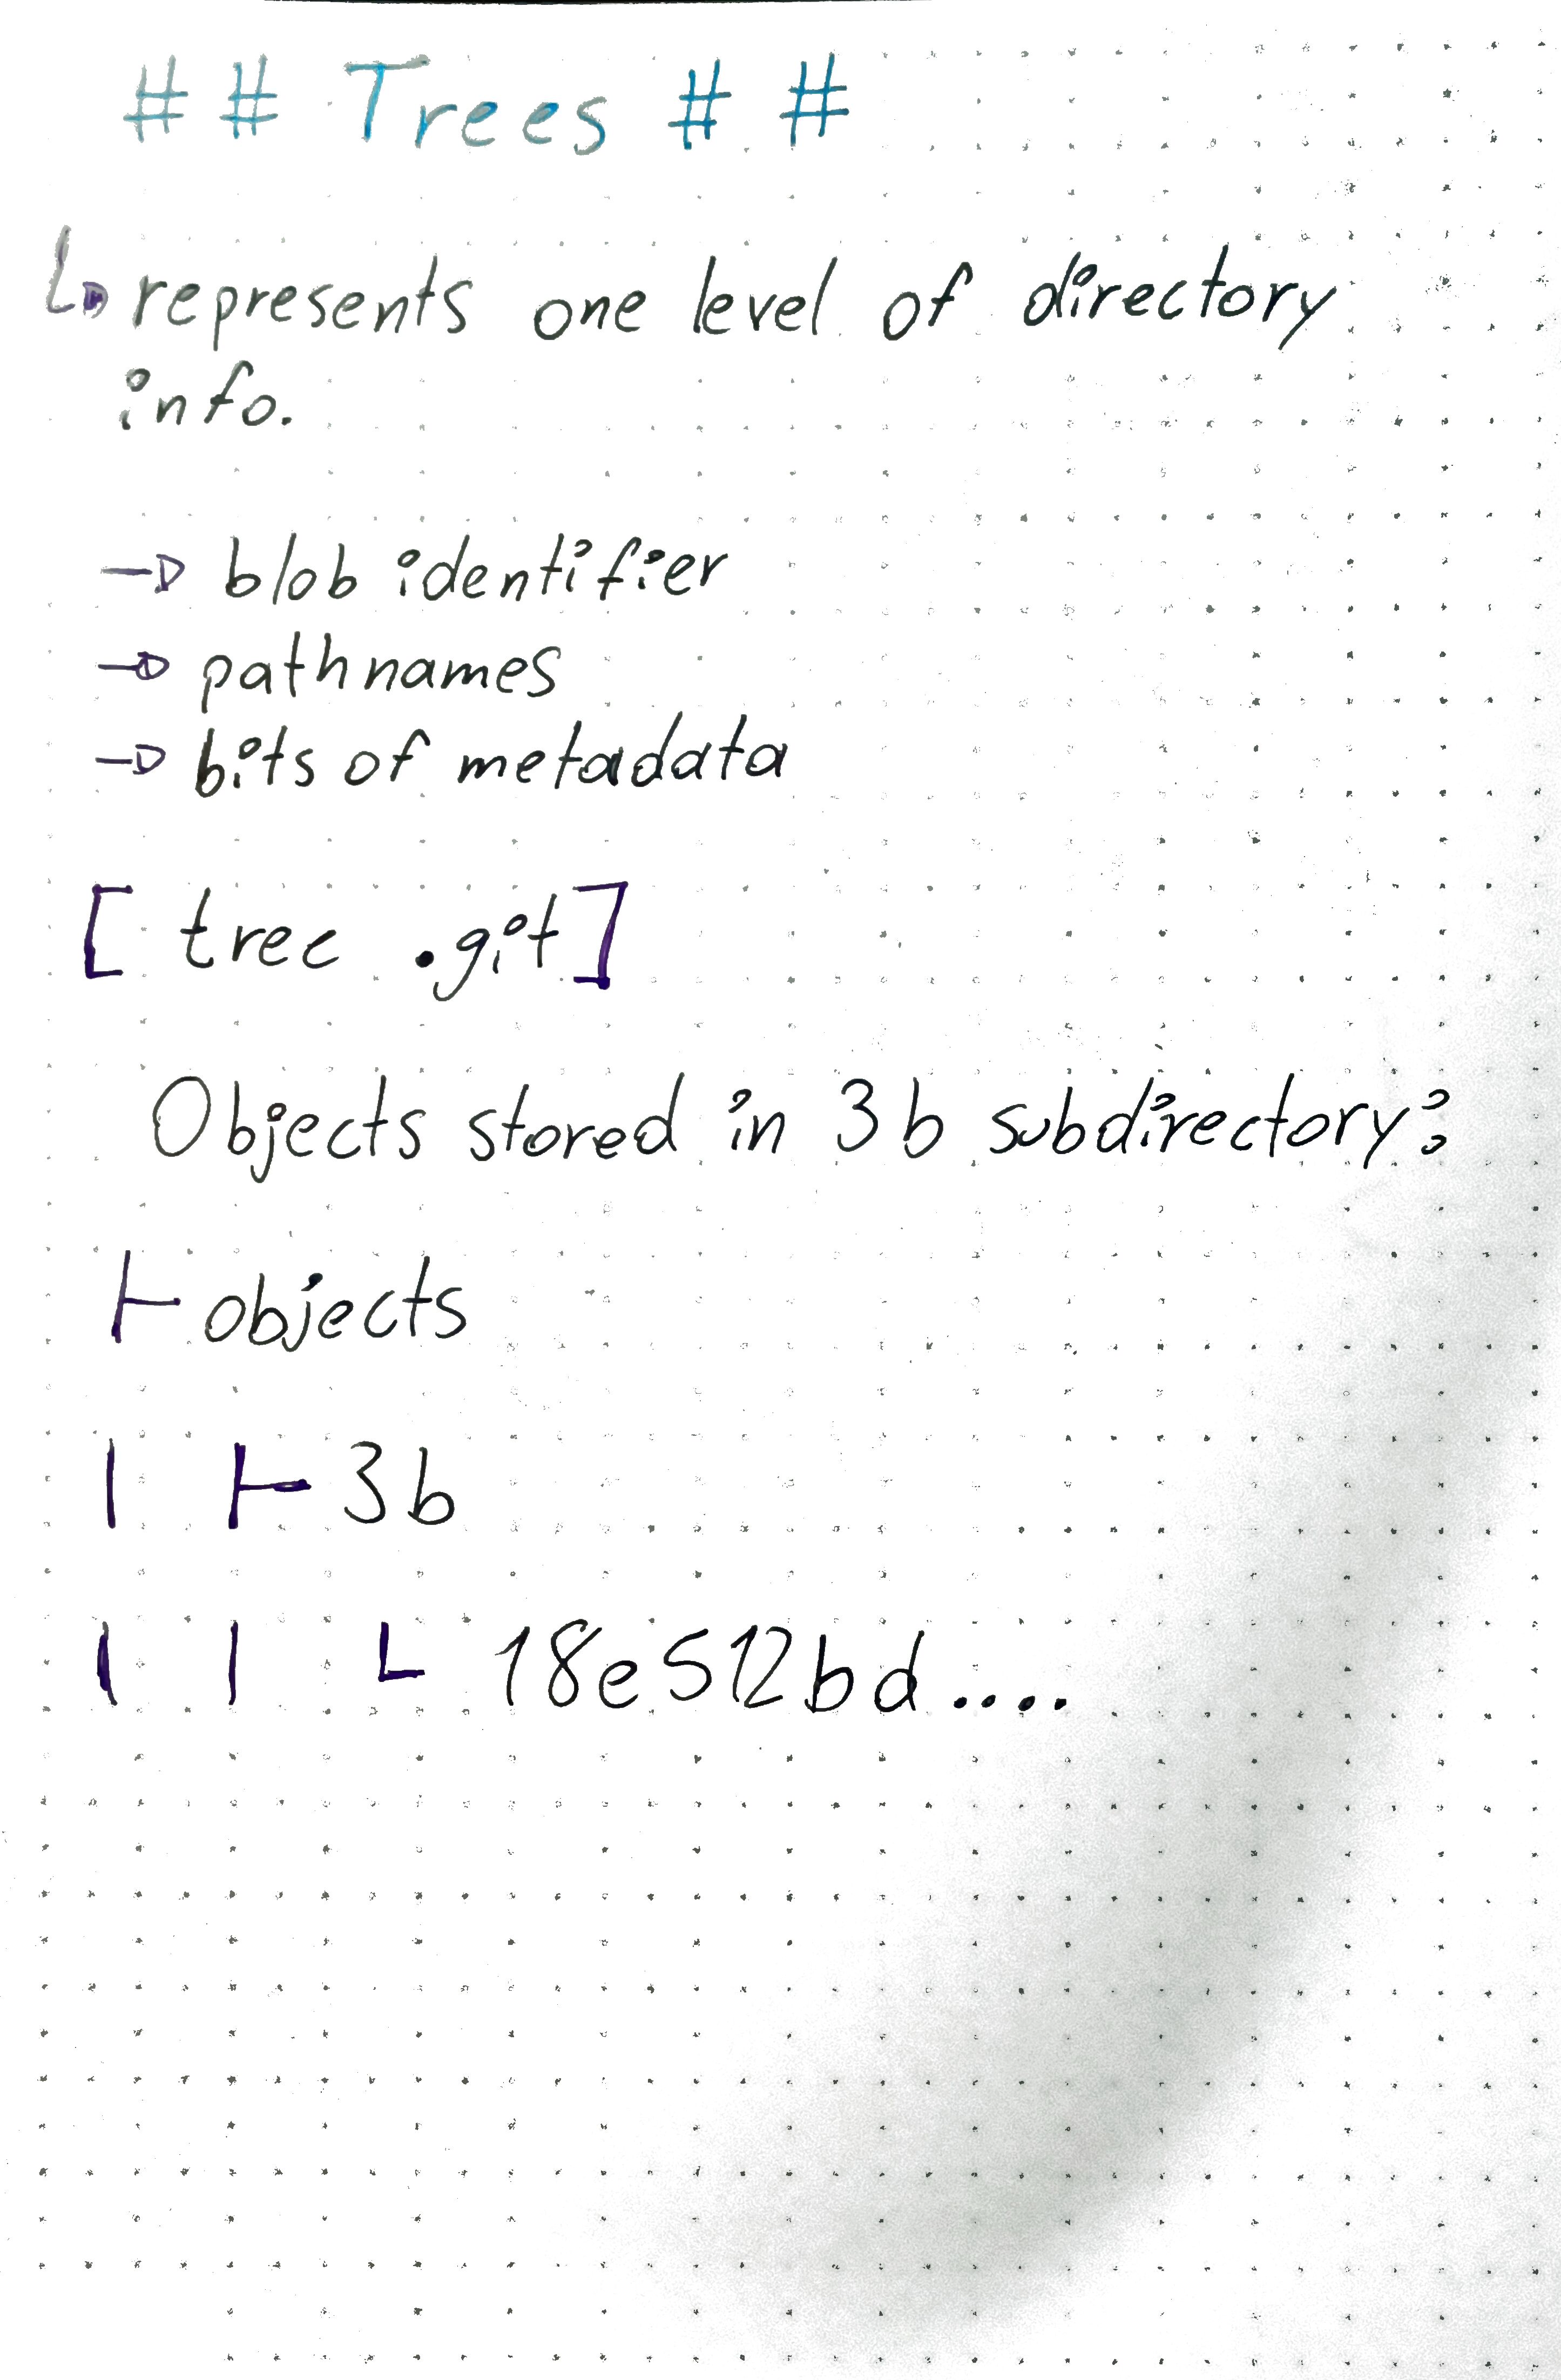 ## Trees ##
↳ represents one level of directory
info.
→ blob identifier
→ pathnames
→ bits of metadata
[ tree .git]
Objects stored in 3b subdirectory:
├ objects
| ├ 3b
| | └ 18e512bd....